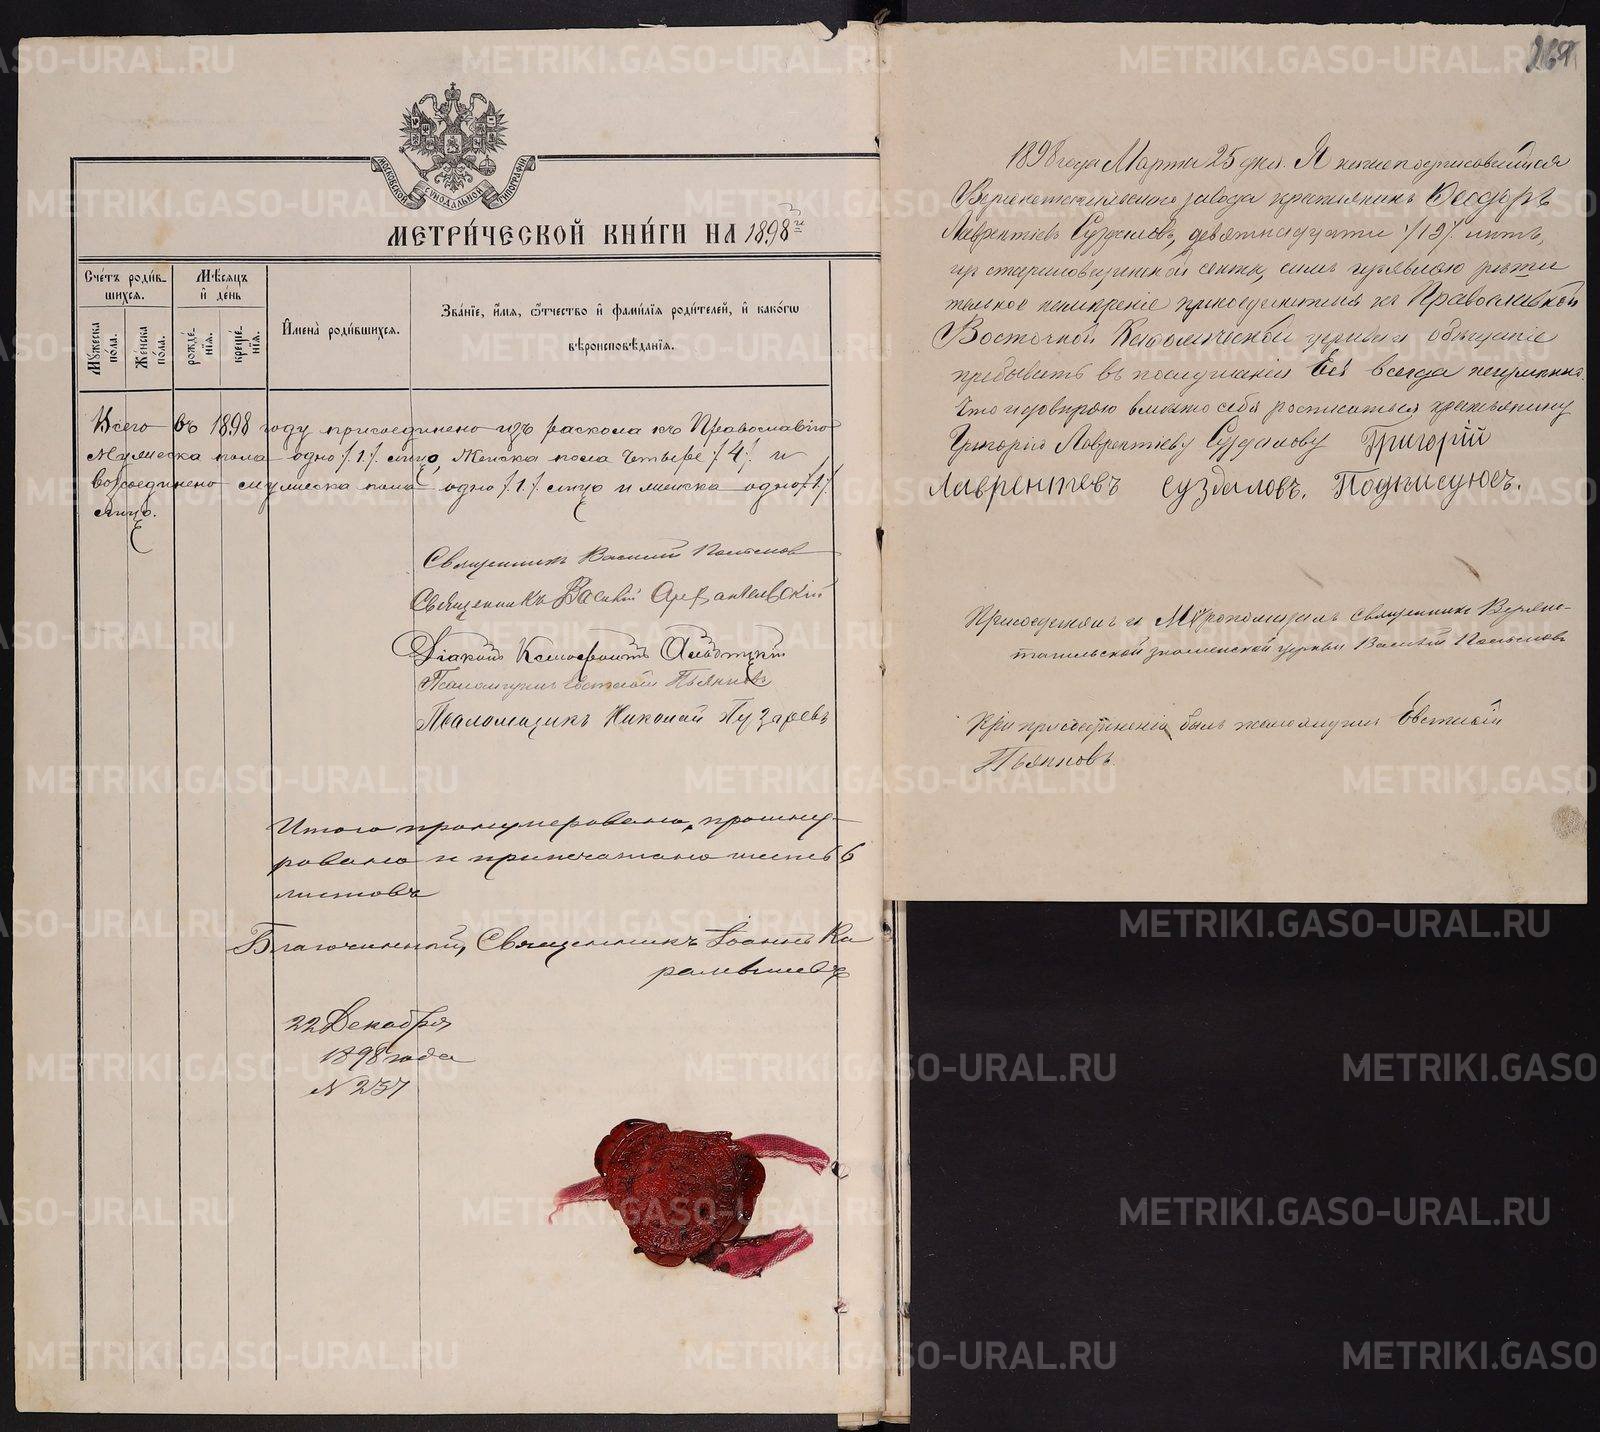 МОСКОВСКОЙ СУНОДАЛЬНОЙ ТИПОГРАФІИ
МЕТРИ́ЧЕСКОЙ КНИ́ГИ НА 1898й
Сче́тъ роди́в-
шихся.
Мѣ́сяцъ
и҆ де́нь
Мꙋ́жеска
по́ла.
Же́нска
по́ла.
рожде́-
нїя.
креще́-
нїя.
И҆мена̀ роди́вшихся.
Зва́нїе, и҆́мя, ѻ҆́тчество и҆ фами́лїя роди́телей, и҆ како́гѡ
вѣроисповѣ́данїя.
Всего въ 1898 году присоединено изъ раскола къ Православію
Мужеска пола одно /1/ лицо, Женска пола четыре /4/ и
возсоединено мужеска пола одно /1/ лицо и женска одно /1/
лицо.
Священникъ Василій
Священникъ Василій Архангельскій
Діаконъ Ксенофонтъ
Псаломщикъ Евгеній Пьянковъ
Псаломщикъ Николай Пузыревъ
Итого пронумеровано, прошну-
ровано и припечатано шесть 6
листовъ
Благочинный, Священникъ Іоаннъ Ка
рамышевъ
22 Декабря
1898 года
N 237
269
1898 года Марта 25 дня. Я нижеподписавшійся
Верхнетагильскаго завода крестьянинъ Ѳеодоръ
Лаврентіевъ Суздаловъ, девятнадцати /19/ лѣтъ,
изъ старообрядческой секты, симъ изъявляю рѣши
тельное намѣреніе присоединиться къ Православной
Восточной Каѳолической церкви и обѣщаніе
пребывать въ послушаніи Ея всегда неизмѣнно.
Въ чемъ довѣряю вмѣсто себя росписаться крестьянину
Григорію Лаврентіеву Суздалову Григорій
Лаврентевъ Суздаловъ. Подписуюсъ.
Присоединялъ и Мѵропомазалъ священникъ Верхне-
тагильской знаменской церкви Василій
При присоединеніи былъ псаломщикъ Евгеній
Пьянковъ.
METRIKI.GASO-URAL.RU